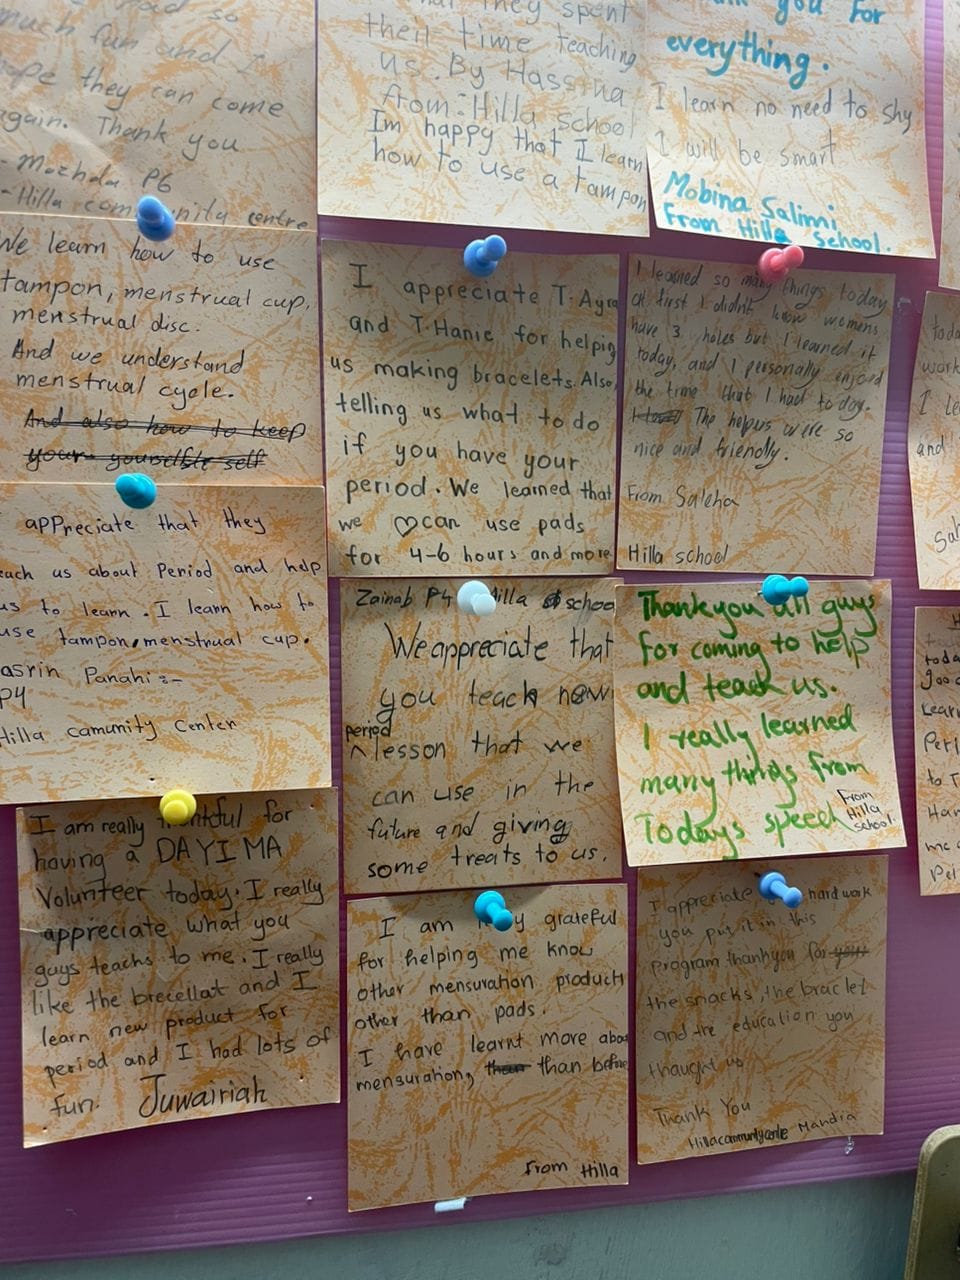 had so
much fun and I
hope they can come
again. Thank you
- Mozhda P6
- Hilla community centre
that they spent
their time teaching
us. By Hassina
from:Hilla school
Im happy that I learn
how to use a tampon
you for
everything.
I learn no need to shy
I will be smart
Mobina Salimi
From Hilla School.
We learn how to use
tampon, menstrual cup,
menstrual disc.
And we understand
menstrual cycle.
And also how to keep
your self
I appreciate T.Ayra
and T.Hanie for helping
us making bracelets. Also,
telling us what to do
if you have your
period. We learned that
we ♡can use pads
for 4-6 hours and more
Zainab P4 Hilla school
I learned so many things today
at first I didn't know womens
have 3 holes but I learned it
today, and I personally enjoyed
the time that I had today.
The helpers were so
nice and friendly.
From Saleha
Hilla school
toda
work
I le
and
Sal
appreciate that they
each us about Period and help
us to learn. I learn how to
use tampon, menstrual cup.
asrin Panahi :-
P4
Hilla camunity Center
We appreciate that
you teach new
period
^ lesson that we
can use in the
future and giving
some treats to us.
Thankyou all guys
for coming to help
and teach us.
I really learned
many things from
Todays speech
From
Hilla
school.
H
toda
goo
Lear
Peri
to T
Han
me
Pei
I am really thankful for
having a DAYIMA
Volunteer today. I really
appreciate what you
guys teachs to me. I really
like the brecellat and I
learn new product for
period and I had lots of
fun. Juwairiah
I am grateful
for helping me know
other mensuration product
other than pads.
I have learnt more abou
mensuration, than than before
From Hilla
I appreciate hard work
you put it in this
program thankyou for your
the snacks, the braclet
and the education you
thaught us
Thank You
Hillacommunitycentre Mandia